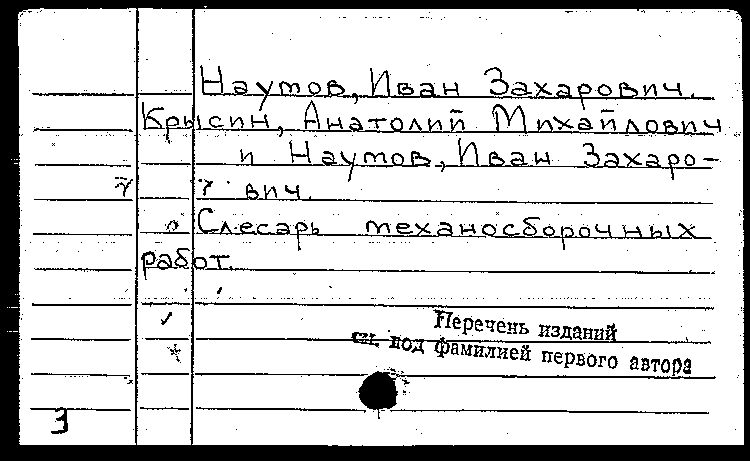 Наумов, Иван Захарович.
Крысин, Анатолий Михайлович
и Наумов, Иван Захаро-
вич.
Слесарь механосборочных
работ.
Перечень изданий
см. под фамилией первого автора
3